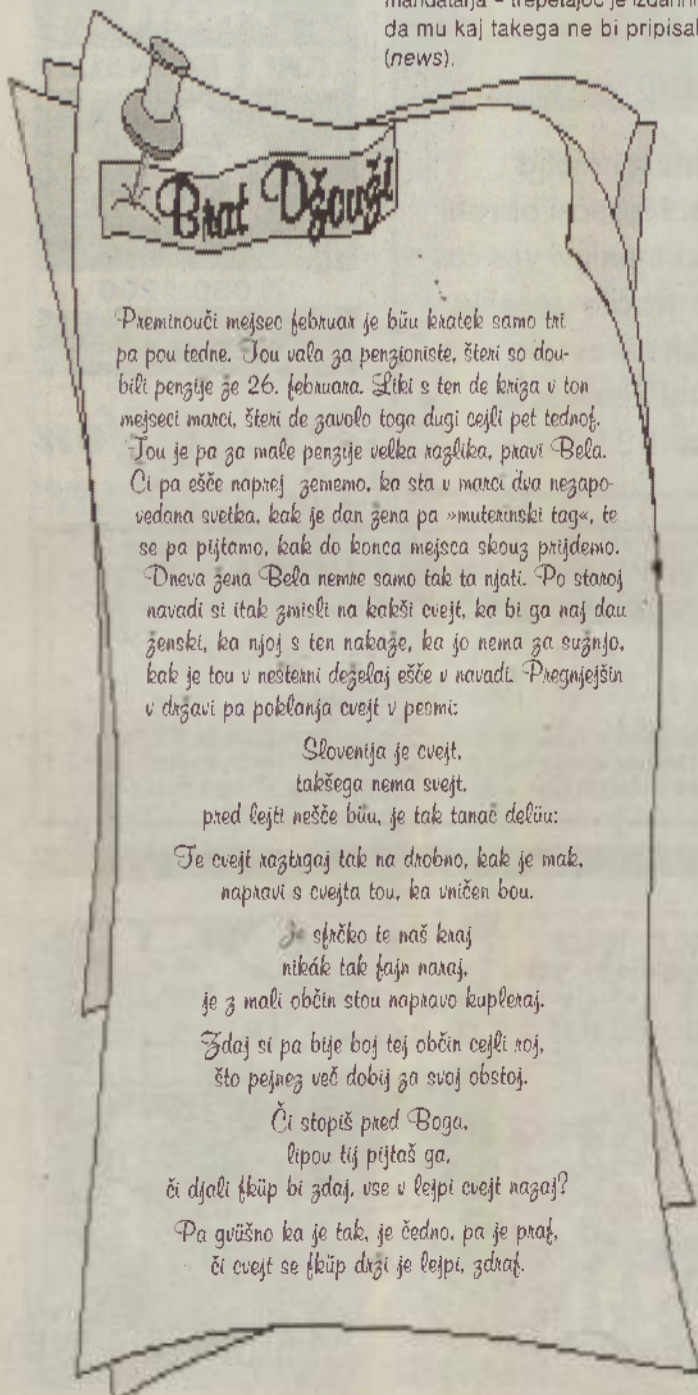 mandatarja – trepetajoč je izdahnil
da mu kaj takega ne bi pripisal
(news).
Brat Džouži
Preminouči mejsec februar je büu kratek samo tri
pa pou tedne. Tou vala za penzioniste, šteri so dou-
bili penzije že 26. februara. Liki s ten de kriza v ton
mejseci marci, šteri de zavolo toga dugi cejli pet tednof.
Tou je pa za male penzije velka razlika, pravi Bela.
Či pa ešče naprej zememo, ka sta v marci dva nezapo-
vedana svetka, kak je dan žena pa »muterinski tag«, te
se pa pijtamo, kak do konca mejsca skouz prijdemo.
Dneva žena Bela nemre samo tak ta njati. Po staroj
navadi si itak zmisli na kakši cvejt, ka bi ga naj dau
ženski, ka njoj s ten nakaže, ka jo nema za sužnjo,
kak je tou v nešterni deželaj ešče v navadi. Pregnjejšin
v državi pa poklanja cvejt v pesmi:
Slovenija je cvejt,
takšega nema svejt,
pred lejti nešče büu, je tak tanač delüu:
Te cvejt raztrgaj tak na drobno, kak je mak,
napravi s cvejta tou, ka vničen bou.
Je sfrčko te naš kraj
nikák tak fajn naraj,
je z mali občin stou napravo kupleraj.
Zdaj si pa bije boj tej občin cejli roj,
što pejnez več dobij za svoj obstoj.
Či stopiš pred Boga,
lipou tij pijtaš ga,
či djali fküp bi zdaj, vse v lejpi cvejt nazaj?
Pa gvüšno ka je tak, je čedno, pa je praf,
či cvejt se fküp drži je lejpi, zdraf.